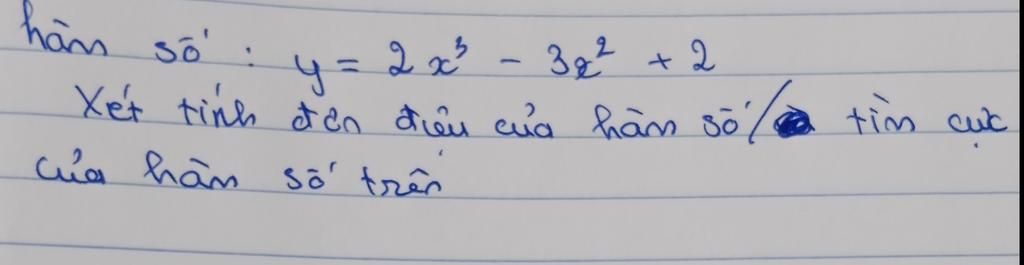 hàm số : y = 2x³ - 3x² + 2
Xét tính đơn điệu của hàm số / tìm cực
của hàm số trên